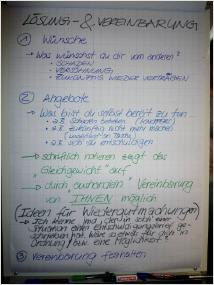 LÖSUNG - & VEREINBARUNG
① Wünsche
- Was wünschst du dir vom anderen?
- SCHADEN
- VERSÖHNUNG
- ZUKÜNFTIG WIEDER VERTRAGEN
② Angebote
- Was bist du selbst bereit zu tun...
- z.B. Schaden beheben
- z.B. zukünftig nicht mehr machen
- z.B. sich zu entschuldigen
→ schriftlich notieren zeigt das
"Gleichgewicht" auf
→ durch "aushandeln" Vereinbarung
von IHNEN möglich
(Ideen für Wiedergutmachungen)
Ordnung / bzw. eine Möglichkeit?
③ Vereinbarung festhalten